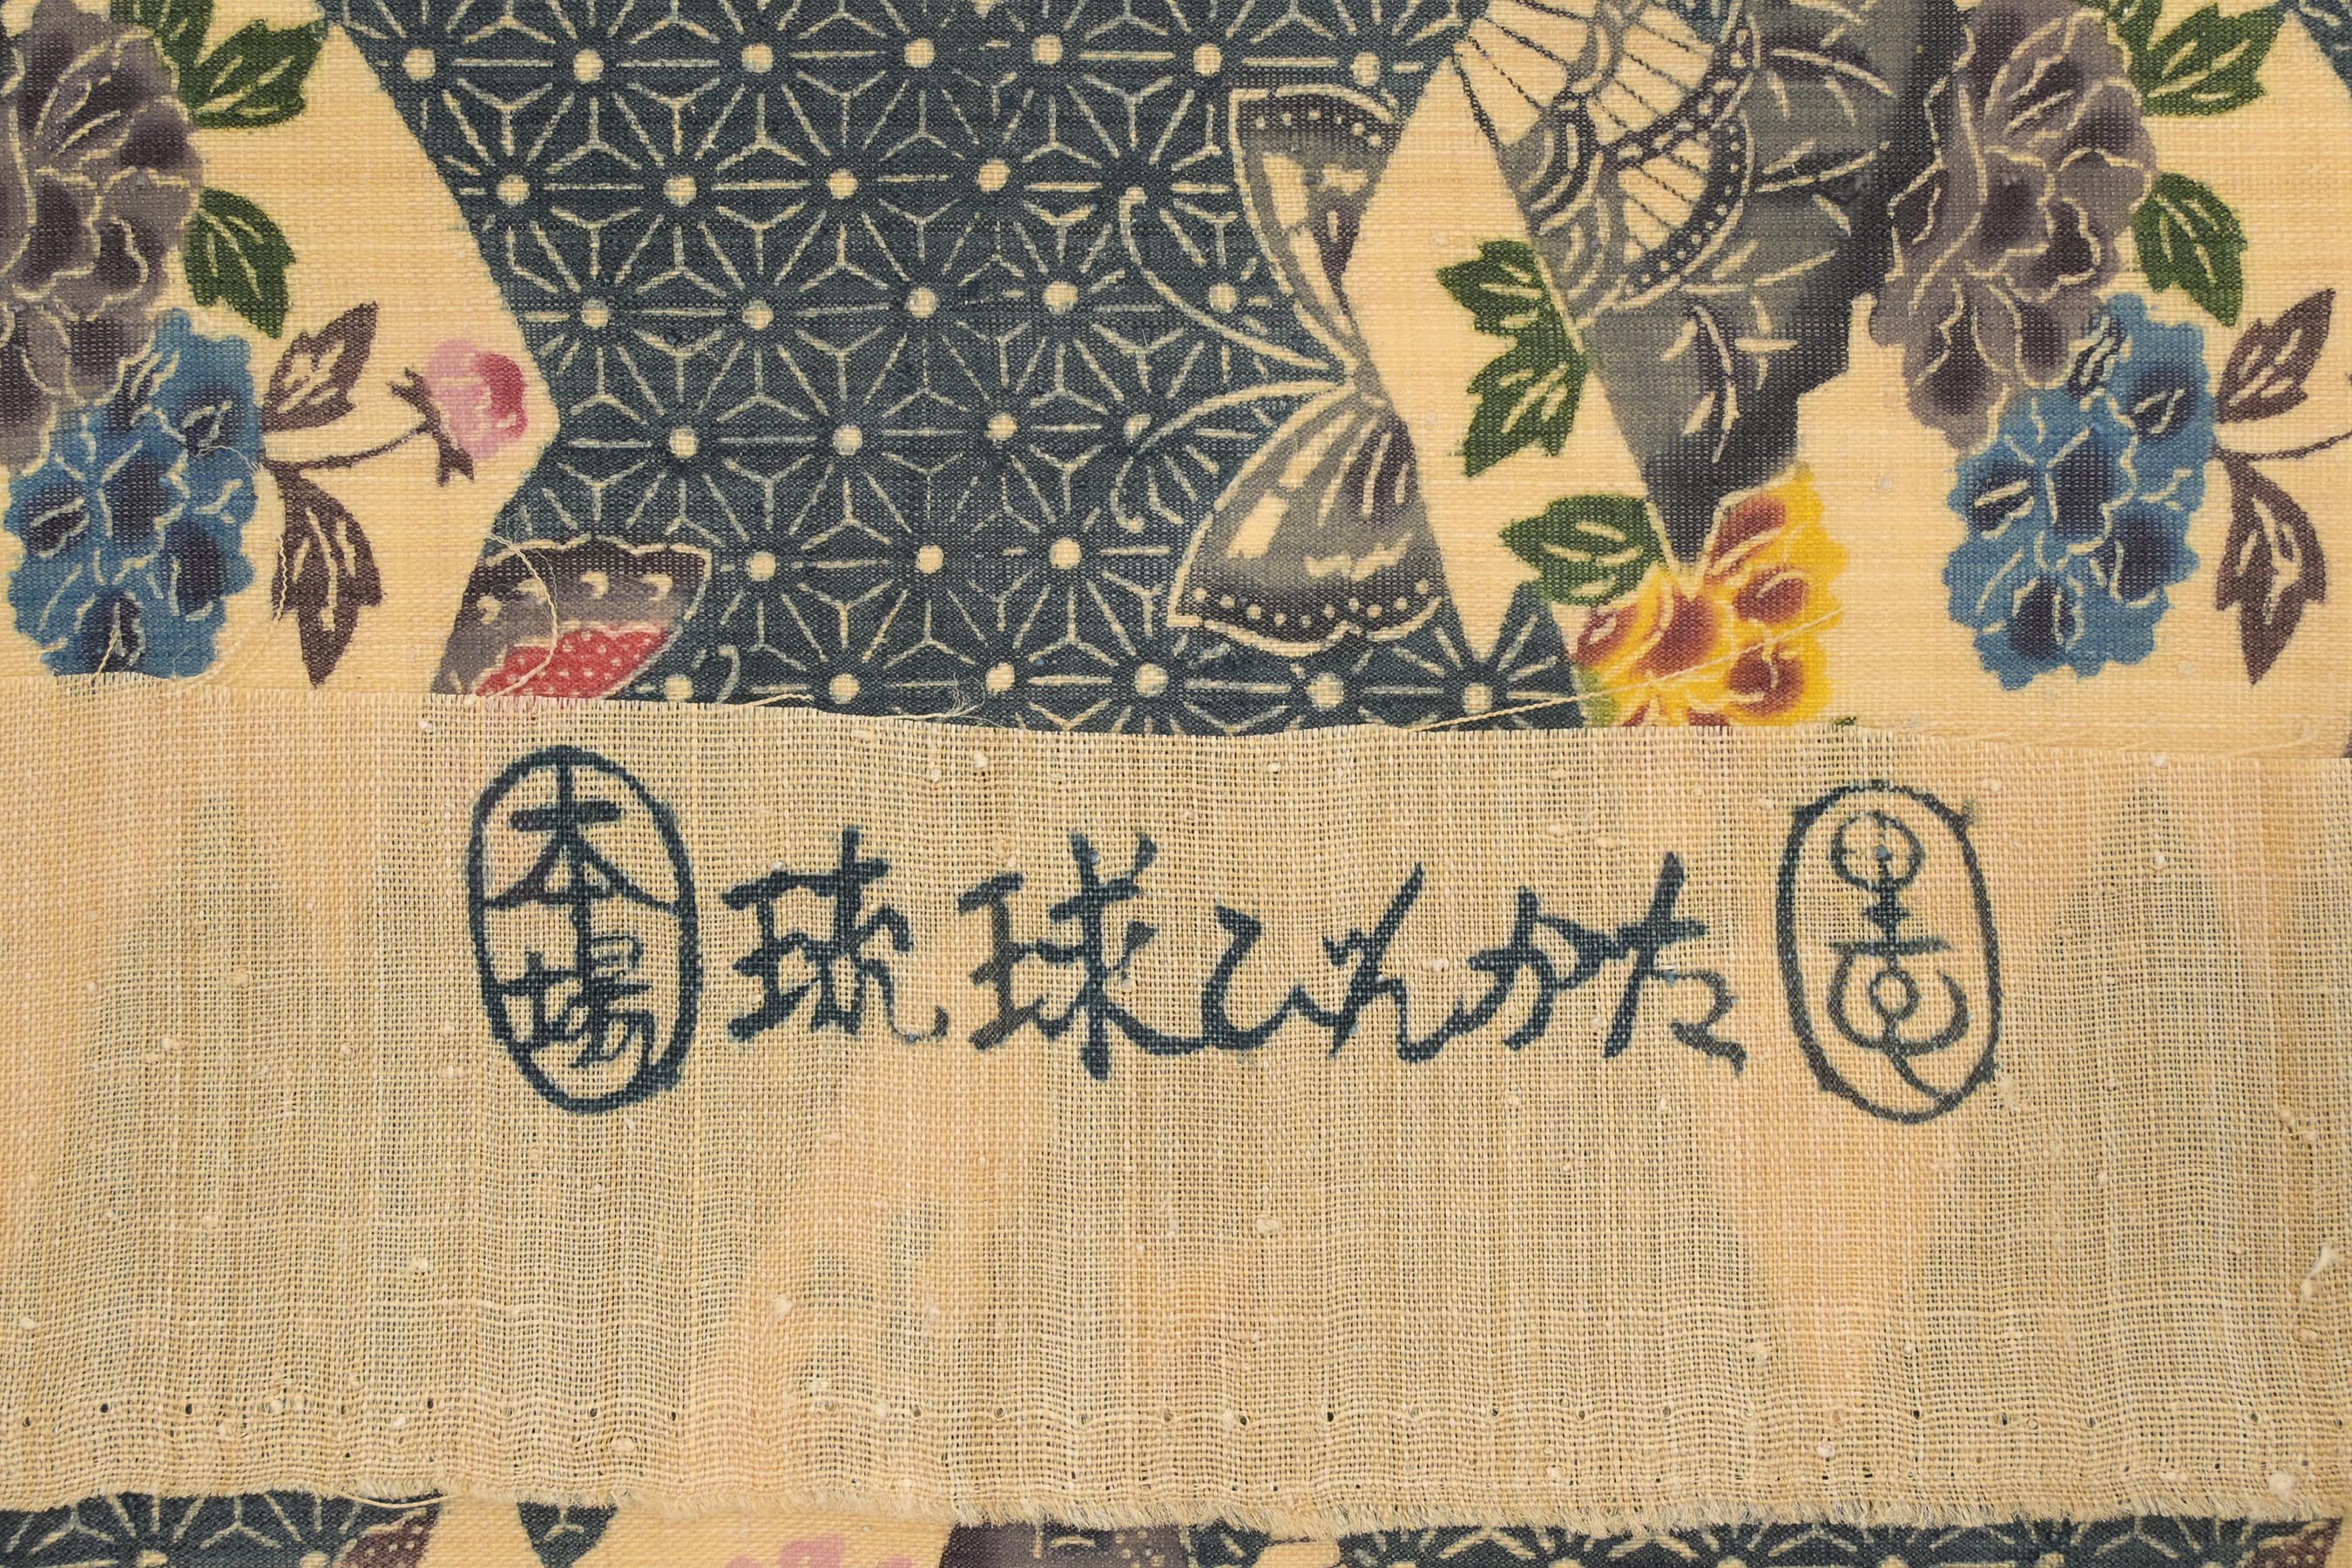 本場 琉球びんがた